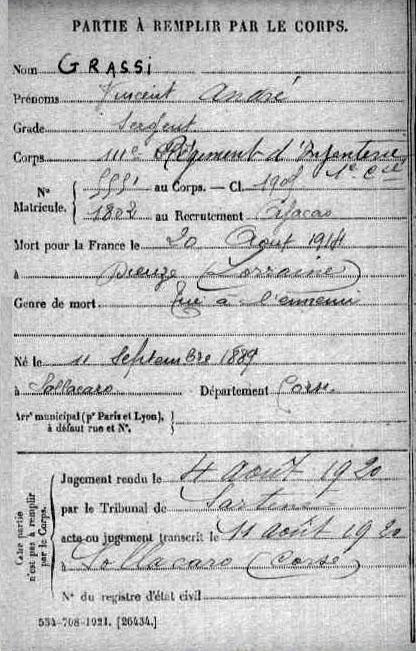 PARTIE À REMPLIR PAR LE CORPS.
Nom GRASSI
Prénoms Vincent André
Grade Sergent
Corps 111e Régiment d'Infanterie 1e Cie
N° Matricule. { 5551 au Corps. — Cl. 1908
1802 au Recrutement Ajaccio
Mort pour la France le 20 Août 1914
à Dieuze (Lorraine)
Genre de mort Tué à l'ennemi
Né le 11 Septembre 1889
à Sollacaro Département Corse
Arrt municipal (pr Paris et Lyon), à défaut rue et N°. }
Cette partie n'est pas à remplir par le Corps.
Jugement rendu le 4 août 1920
par le Tribunal de Sartène
acte ou jugement transcrit le 11 août 1920
à Sollacaro (Corse)
N° du registre d'état civil
534-708-1921. [26434.]